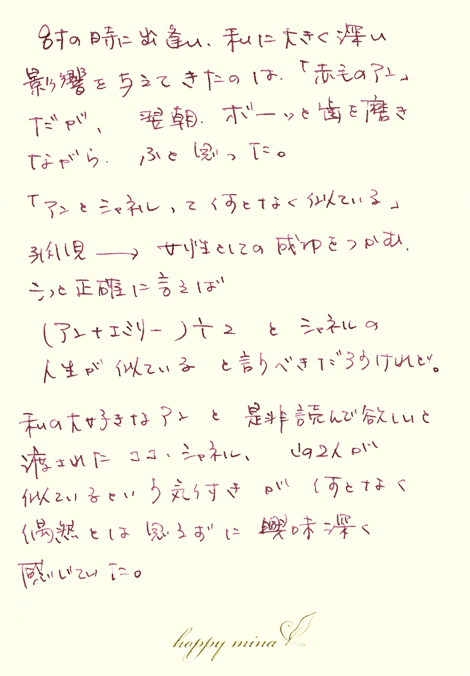 8才の時に出逢い、私に大きく深い
影響を与えてきたのは、「赤毛のアン」
だが、翌朝、ボーッと歯を磨き
ながら、ふと思った。
「アンとシャネルって何となく似ている」
孤児 → 女性としての成功をつかむ、
もっと正確に言えば
(アン+エミリー)÷2 と シャネルの
人生が似ている と言うべきだろうけれど。
私の大好きなアン と 是非読んで欲しいと
渡された ココ・シャネル、この2人が
似ているという気づき が 何となく
偶然とは思えずに 興味深く
感じていた。
happy mina